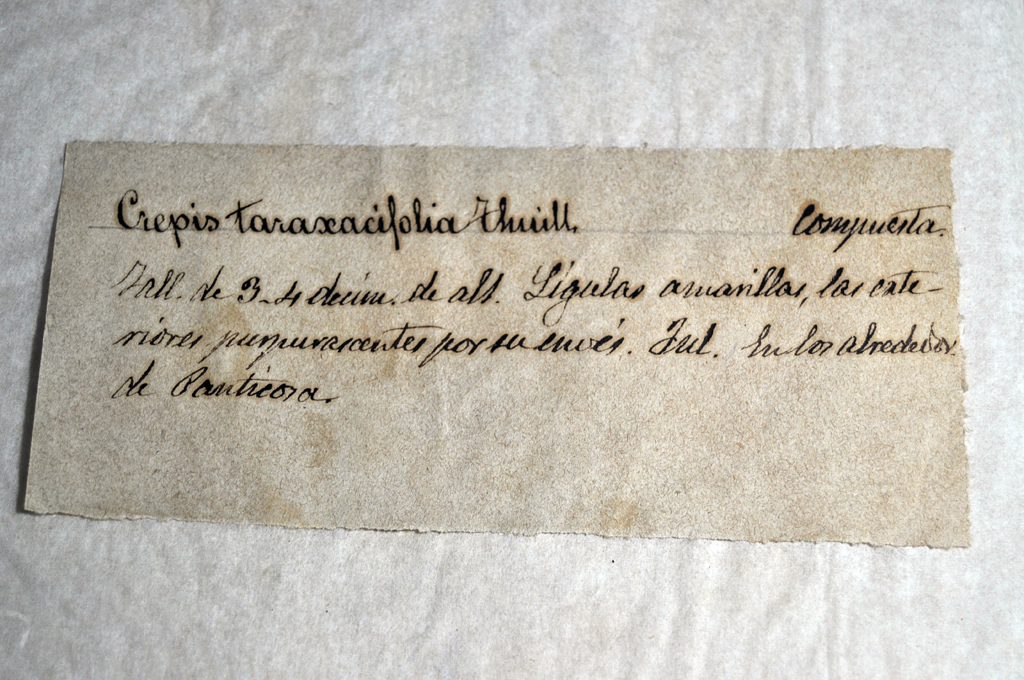 Crepis taraxacifolia Thuill. Compuesta.
Tall. de 3-4 decím. de alt. Lígulas amarillas, las exte-
riores purpurascentes por su envés. Jul. En los alrededor.
de Panticosa.